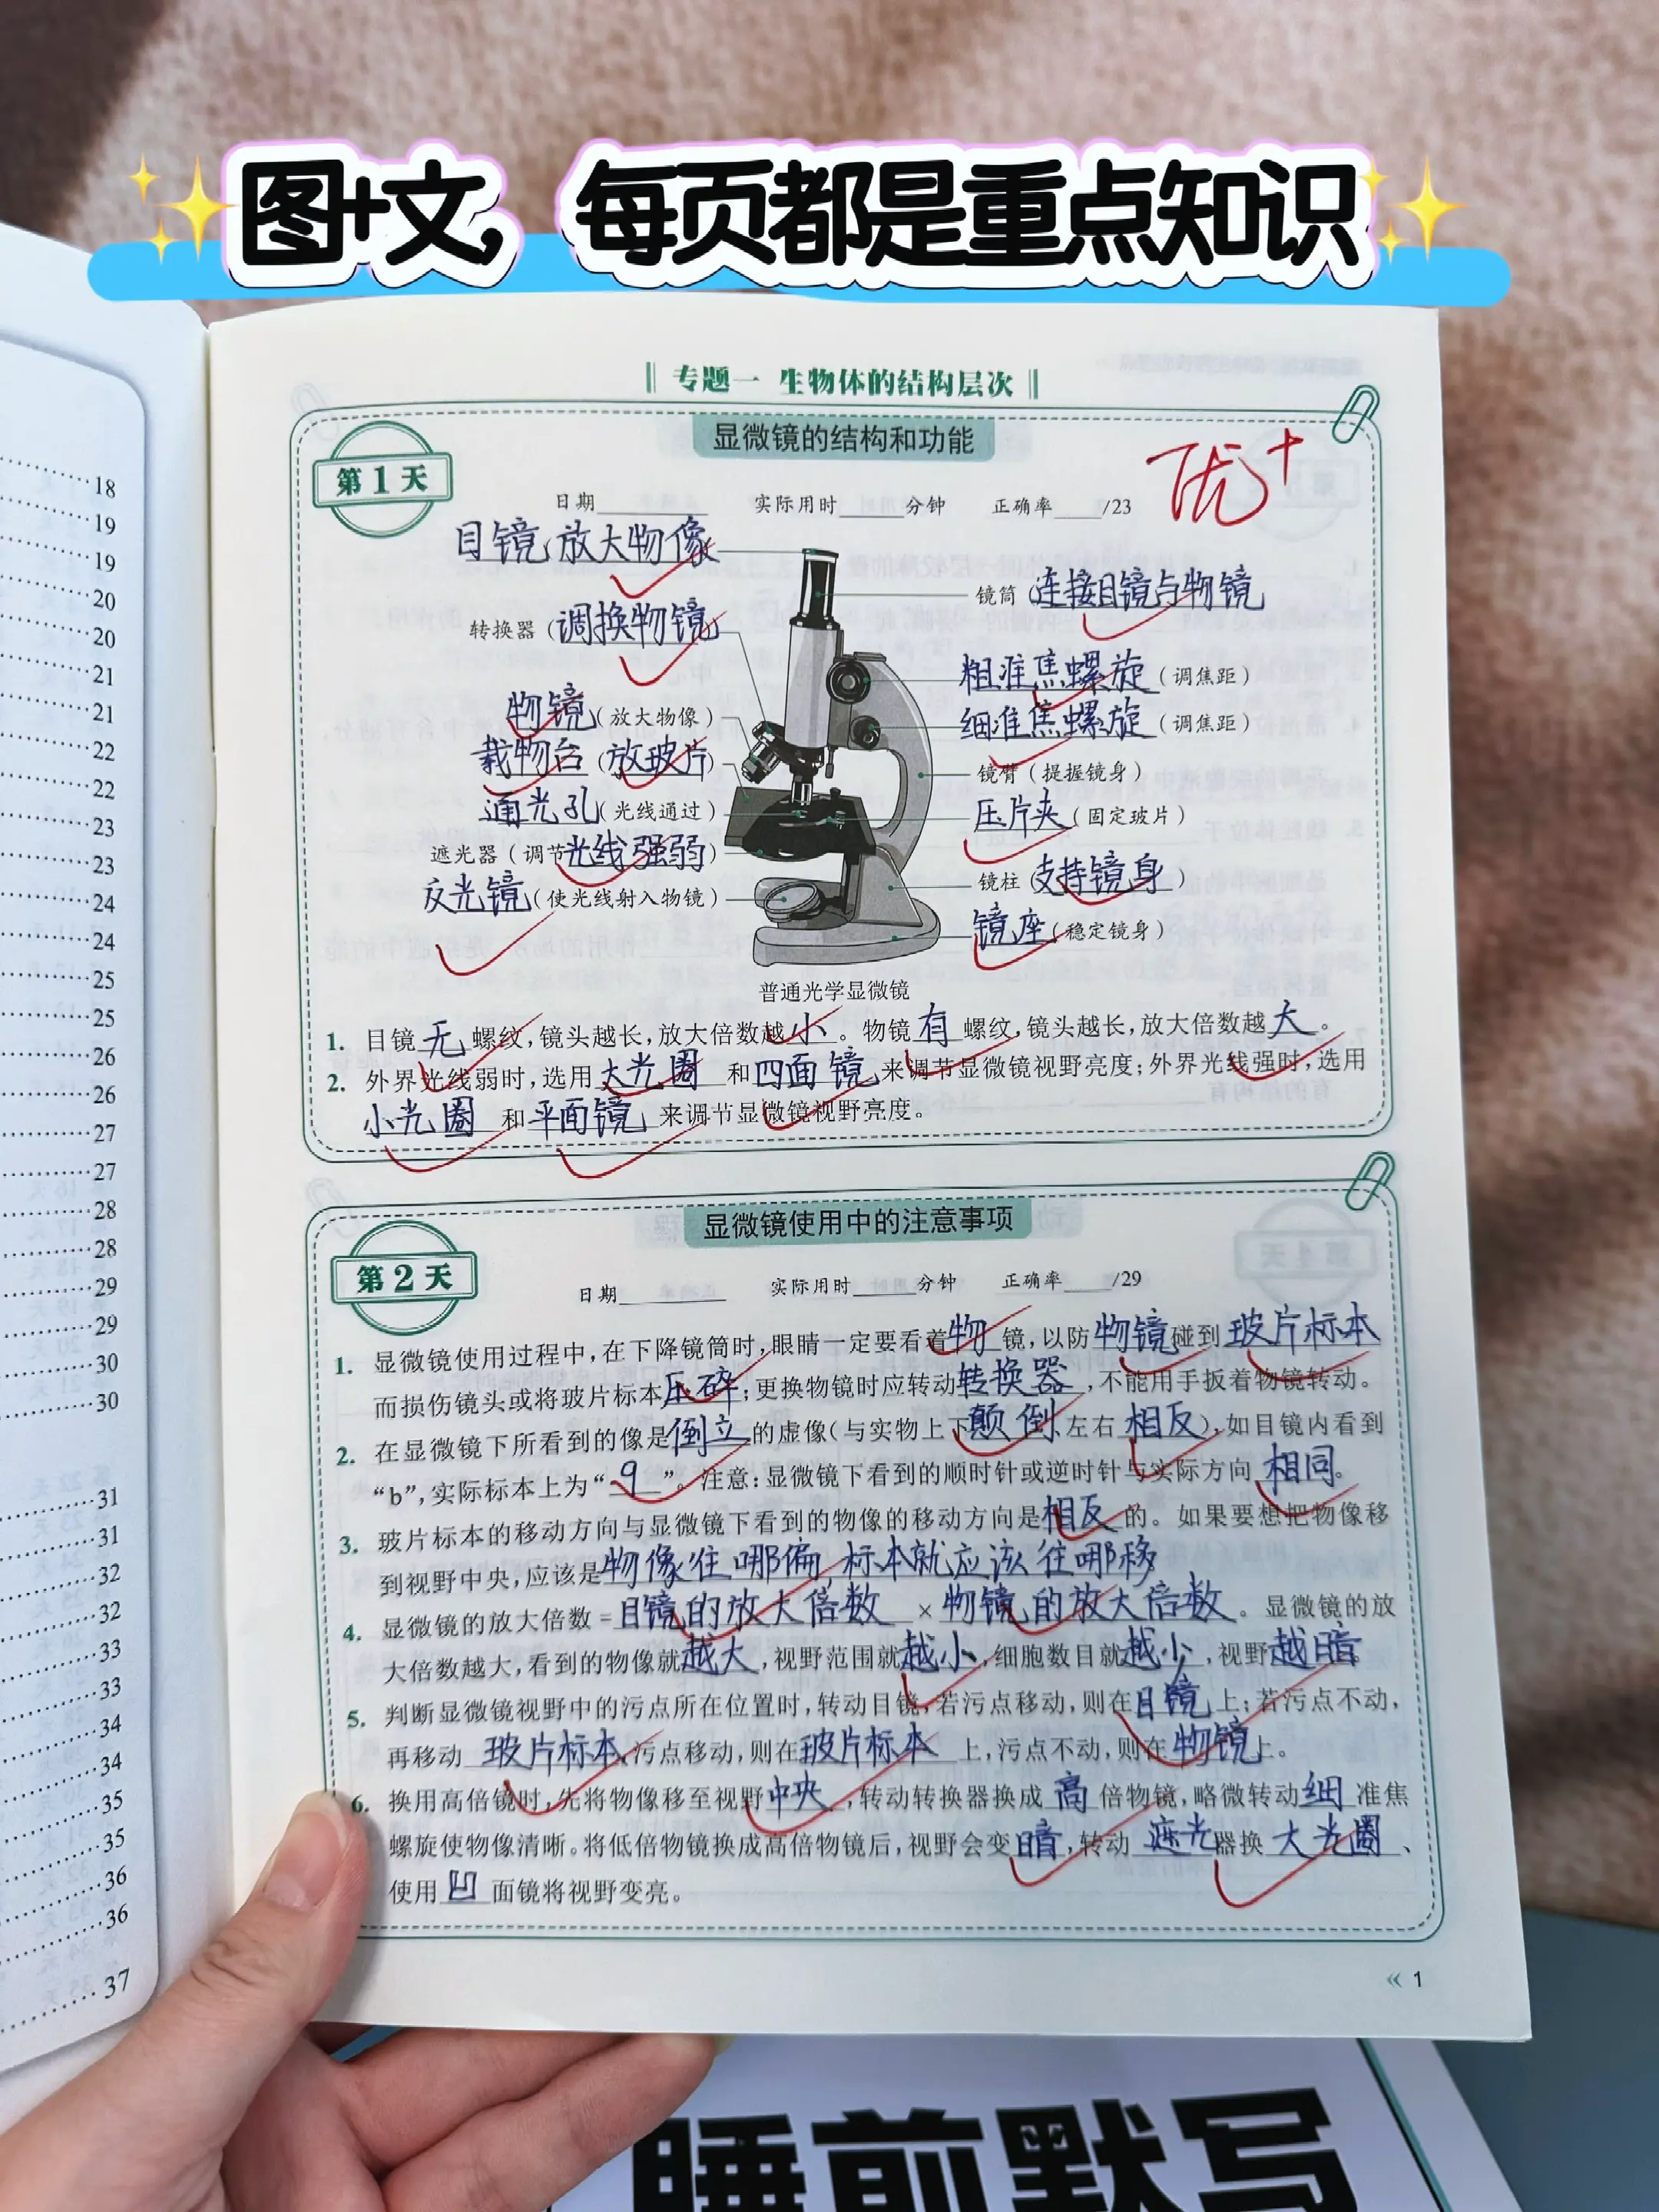 图+文，每页都是重点知识
专题一 生物体的结构层次
显微镜的结构和功能
第1天
优+
日期______ 实际用时____分钟 正确率____/23
目镜(放大物像)
镜筒(连接目镜与物镜
转换器(调换物镜)
粗准焦螺旋(调焦距)
物镜(放大物像)
细准焦螺旋(调焦距)
载物台(放玻片)
镜臂(提握镜身)
通光孔(光线通过)
压片夹(固定玻片)
遮光器(调节光线强弱)
镜柱(支持镜身)
反光镜(使光线射入物镜)
镜座(稳定镜身)
普通光学显微镜
1. 目镜无螺纹,镜头越长,放大倍数越小。物镜有螺纹,镜头越长,放大倍数越大。
2. 外界光线弱时,选用大光圈和四面镜来调节显微镜视野亮度;外界光线强时,选用
小光圈和平面镜来调节显微镜视野亮度。
显微镜使用中的注意事项
第2天
日期______ 实际用时____分钟 正确率____/29
1. 显微镜使用过程中,在下降镜筒时,眼睛一定要看着物镜,以防物镜碰到玻片标本
而损伤镜头或将玻片标本压碎;更换物镜时应转动转换器,不能用手扳着物镜转动。
2. 在显微镜下所看到的像是倒立的虚像(与实物上下颠倒、左右相反),如目镜内看到
“b”,实际标本上为“q”。注意:显微镜下看到的顺时针或逆时针与实际方向相同。
3. 玻片标本的移动方向与显微镜下看到的物像的移动方向是相反的。如果要想把物像移
到视野中央,应该是物像往哪偏,标本就应该往哪移
4. 显微镜的放大倍数=目镜的放大倍数×物镜的放大倍数。显微镜的放
大倍数越大,看到的物像就越大,视野范围就越小,细胞数目就越小,视野越暗。
5. 判断显微镜视野中的污点所在位置时,转动目镜,若污点移动,则在目镜上;若污点不动,
再移动玻片标本,污点移动,则在玻片标本上,污点不动,则在物镜上。
6. 换用高倍镜时,先将物像移至视野中央,转动转换器换成高倍物镜,略微转动细准焦
螺旋使物像清晰。将低倍物镜换成高倍物镜后,视野会变暗,转动遮光器换大光圈、
使用凹面镜将视野变亮。
« 1
18
19
19
20
20
21
21
22
22
23
23
24
24
25
25
26
26
27
27
28
28
29
29
30
30
31
31
32
32
33
33
34
34
35
35
36
36
37
睡前默写